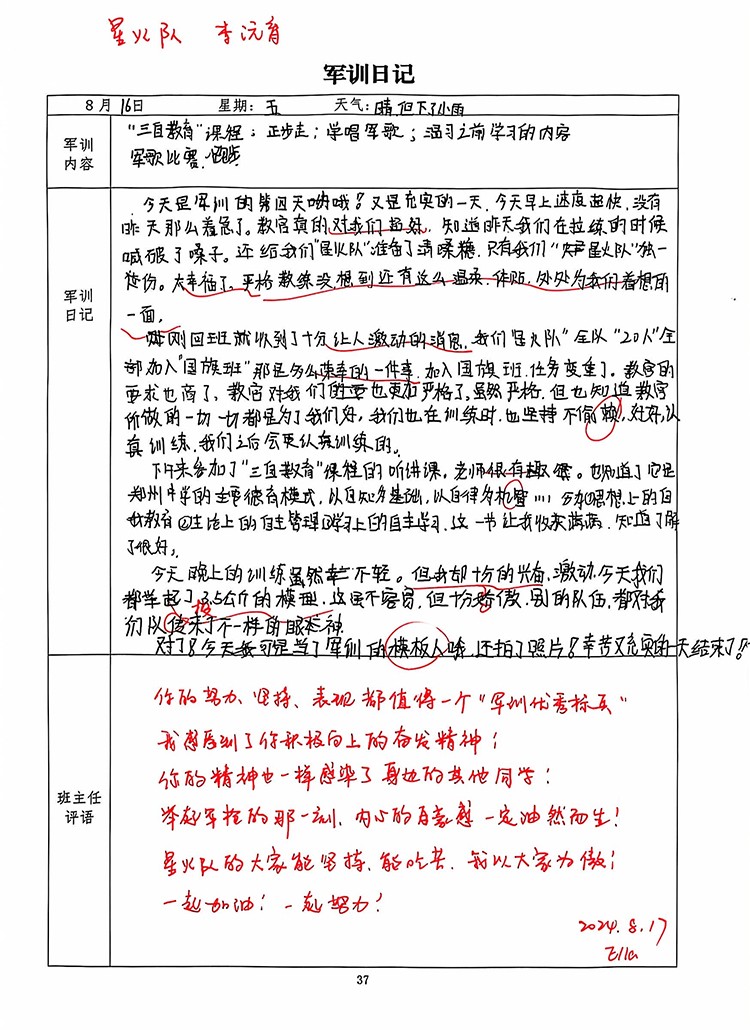 星火队 李沅育
军训日记
8月16日 星期:五 天气:晴,但下了小雨
军训
内容
"三自教育"课程;正步走;学唱军歌;温习之前学习的内容
军歌比赛,
军训
日记
今天是军训的第四天哟哦?又是充实的一天,今天早上速度超快,没有
昨天那么着急了。教官真的对我们超好,知道昨天我们在拉练的时候
喊破了嗓子。还给我们"星火队"准备了清嗓糖,只有我们"星火队"独一
份。太幸福了,严格教练没想到还有这么温柔,体贴,处处为我们着想的
一面,
刚回班就收到了十分让人激动的消息,我们"星火队"全队"20人"全
部加入"国旗班"那是多么荣幸的一件事,加入国旗班,任务变重了。教官的
要求也高了,教官对我们的要也更加严格了。虽然严格,但也知道教官
所做的一切一切都是为了我们好,我们也在训练时,也坚持不偷赖,好好,认
真训练,我们之后会更认真训练的。
下午来参加了"三自教育"课程的听讲课,老师很有趣。也知道了它是
郑州中学的主要德育模式,以自知为基础,以自律为 思想上的自
我教育②生活上的自主管理③学习上的自主学习,这一书让我收获满满,知道了解
了很好。
今天晚上的训练虽然幸 不轻。但我却十分的兴奋,激动,今天我们
都学起了3.5公斤的模型,这是不容易,但十分骄傲,别的队伍,都对我
们以传来了不一样的眼神
对了?今天我可是当了军训的模板人呀,还拍了照片?辛苦又充实的一天结束了?
班主任
评语
你的努力、坚持、表现都值得一个"军训优秀标兵"
我感受到了你积极向上的奋发精神!
你的精神也一样感染了身边的其他同学!
举起军枪的那一刻,内心的自豪感一定油然而生!
星火队的大家能坚持,能吃苦,我以大家为傲!
一起加油!一起努力!
2024.8.17
Ella
37